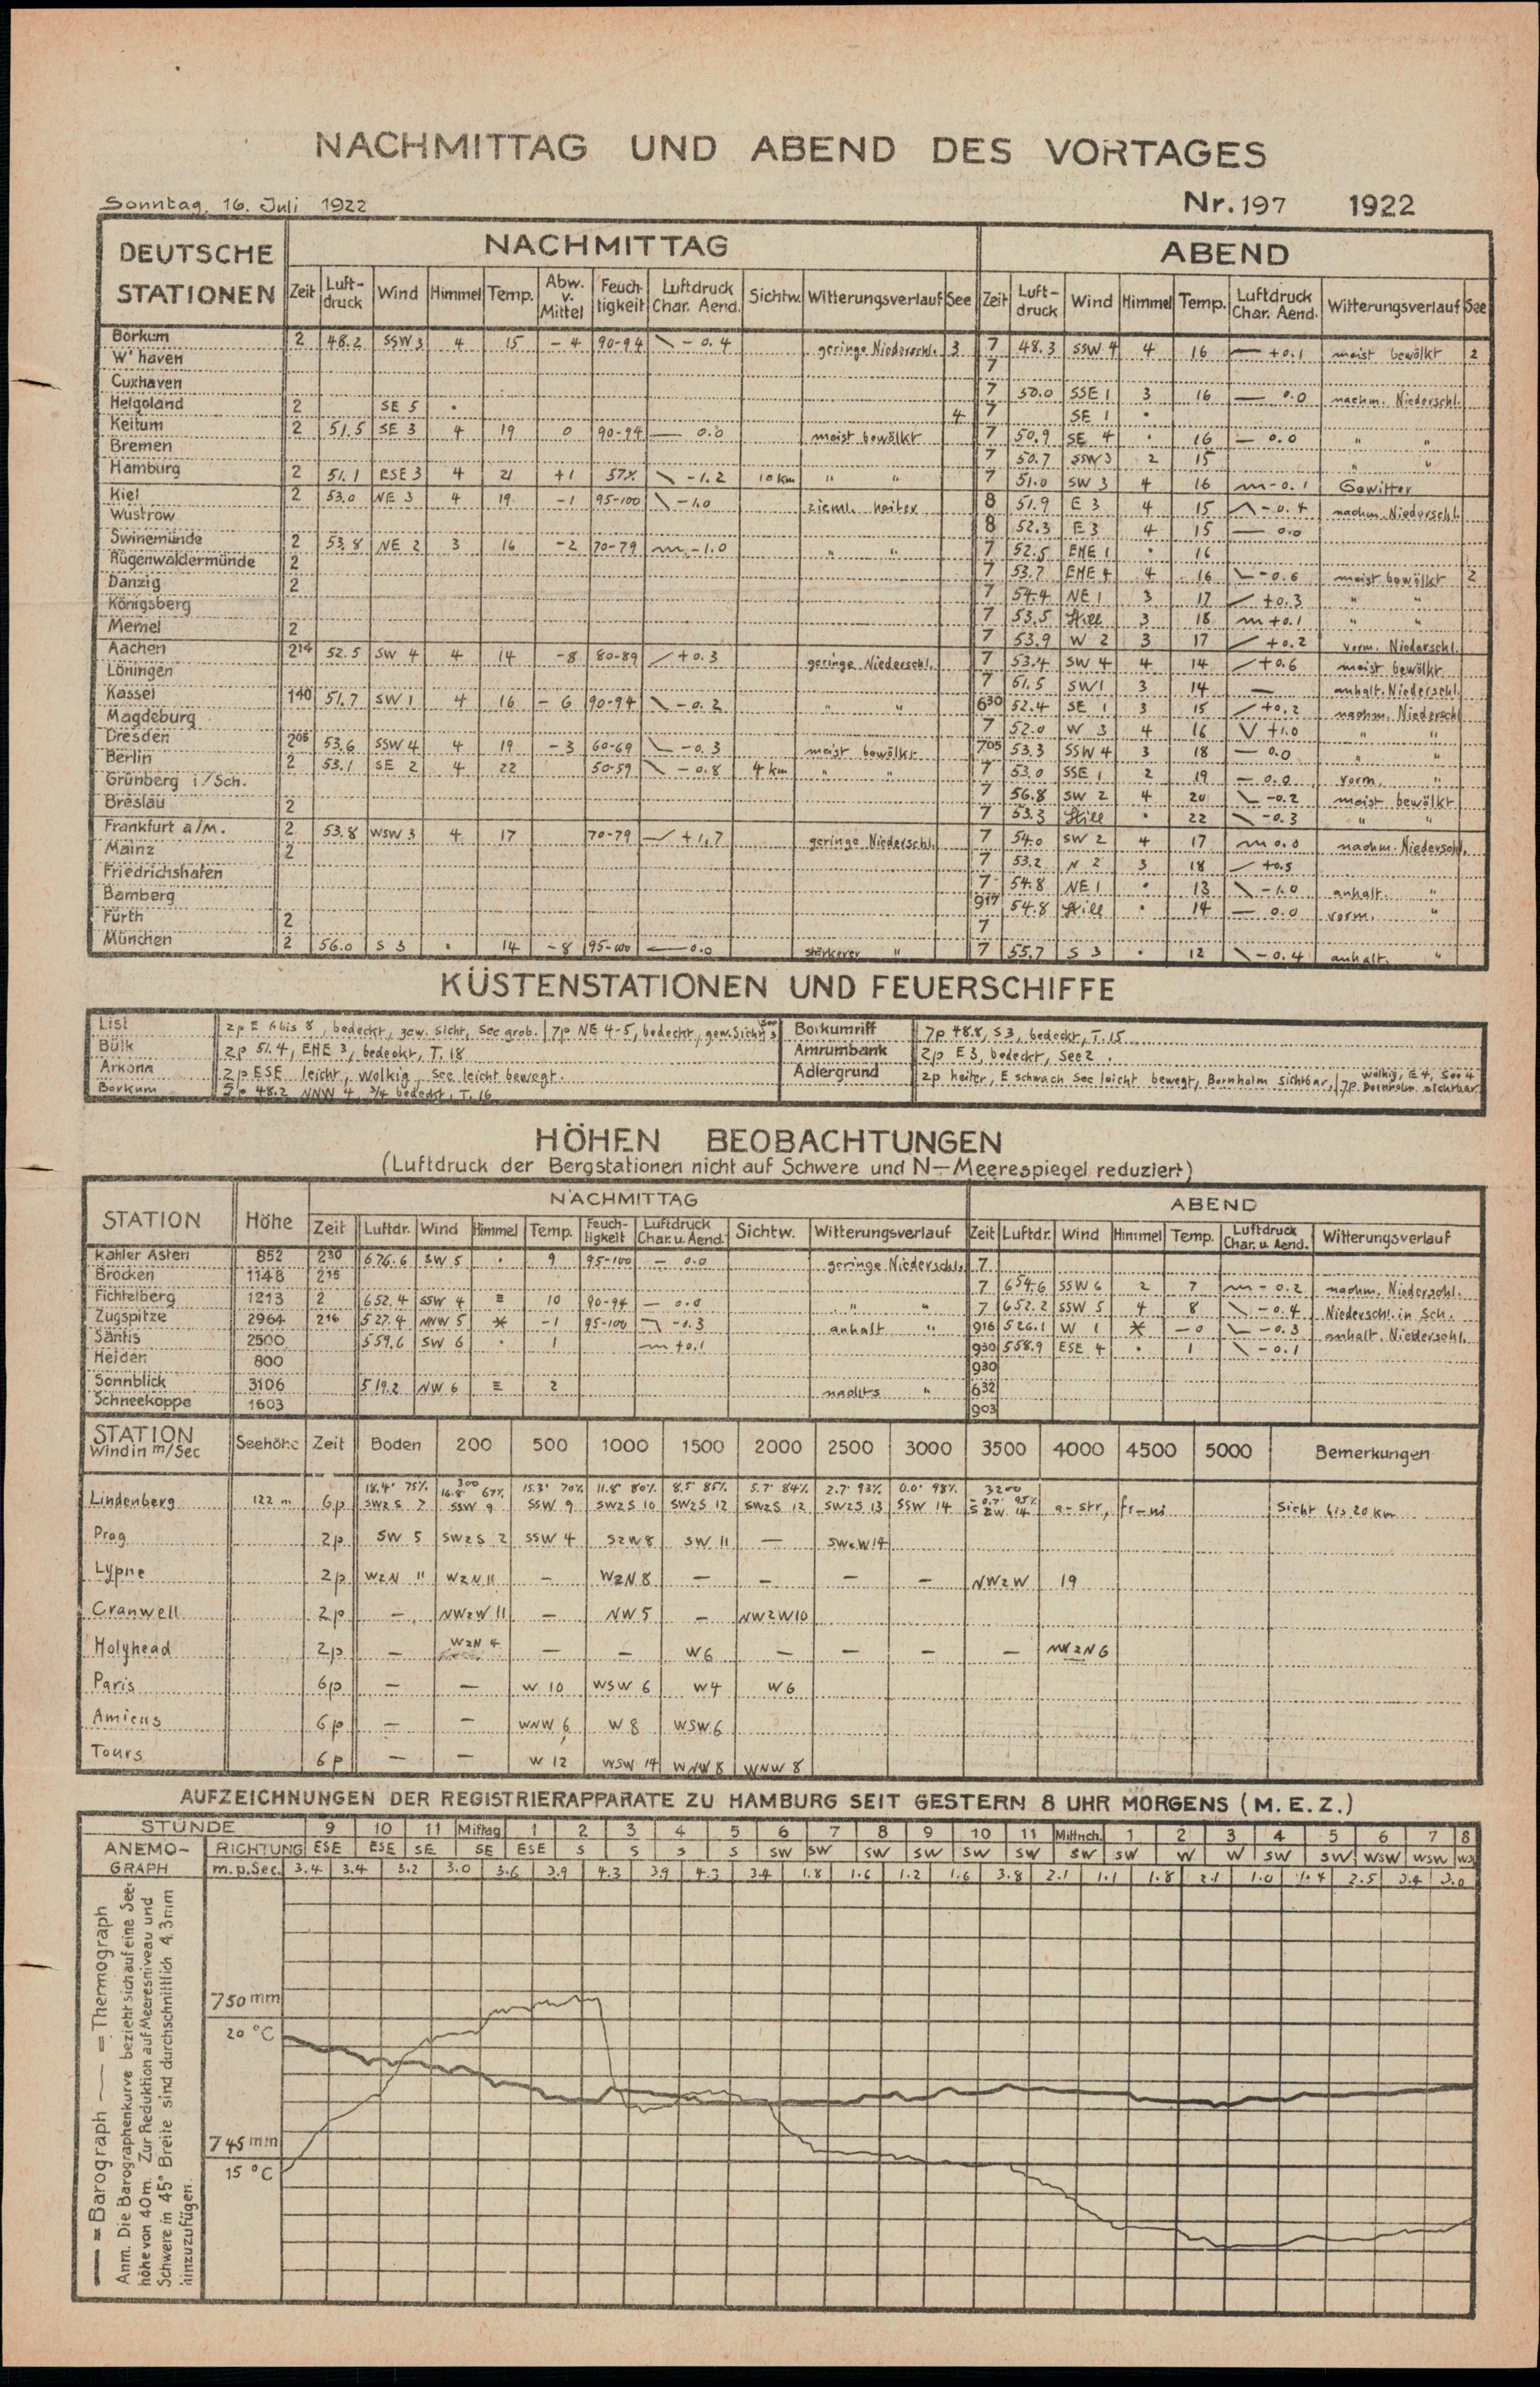 NACHMITTAG UND ABEND DES VORTAGES
Sonntag, 16. Juli 1922 Nr. 197 1922
DEUTSCHE STATIONEN NACHMITTAG ABEND
Zeit Luft-druck Wind Himmel Temp. Abw. v. Mittel Feuch-tigkeit Luftdruck Char. Aend. Sichtw. Witterungsverlauf See Zeit Luft-druck Wind Himmel Temp. Luftdruck Char. Aend. Witterungsverlauf See
Borkum 2 48.2 SSW 3 4 15 - 4 90-94 - 0.4 geringe Niederschl. 3 7 48.3 SSW 4 4 16 +0.1 meist bewölkt 2
W'haven 7
Cuxhaven 7 50.0 SSE 1 3 16 0.0 nachm. Niederschl.
Helgoland 2 SE 5 • 4 7 SE 1 •
Keitum 2 51.5 SE 3 4 19 0 90-94 — 0.0 meist bewölkt 7 50.9 SE 4 • 16 — 0.0 " "
Bremen 7 50.7 SSW 3 2 15 " "
Hamburg 2 51.1 ESE 3 4 21 +1 57% \ -1.2 10 km " " 7 51.0 SW 3 4 16 - 0.1 Gewitter
Kiel 2 53.0 NE 3 4 19 -1 95-100 \ -1.0 zieml. heiter 8 51.9 E 3 4 15 - 0.4 nachm. Niederschl.
Wustrow 8 52.3 E 3 4 15 — 0.0
Swinemünde 2 53.8 NE 2 3 16 -2 70-79 -1.0 " " 7 52.5 ENE 1 • 16
Rügenwaldermünde 2 7 53.7 ENE 4 4 16 -0.6 meist bewölkt 2
Danzig 2 7 54.4 NE 1 3 17 +0.3 " "
Königsberg 7 53.5 Still 3 18 +0.1 " "
Memel 2 7 53.9 W 2 3 17 +0.2 vorm. Niederschl.
Aachen 2 14 52.5 SW 4 4 14 -8 80-89 +0.3 geringe Niederschl. 7 53.4 SW 4 4 14 +0.6 meist bewölkt
Löningen 7 51.5 SW 1 3 14 — anhalt. Niederschl.
Kassel 1 40 51.7 SW 1 4 16 - 6 90-94 \ -0.2 " " 6 30 52.4 SE 1 3 15 +0.2 nachm. Niederschl.
Magdeburg 7 52.0 W 3 4 16 V +1.0 " "
Dresden 2 05 53.6 SSW 4 4 19 -3 60-69 -0.3 meist bewölkt 7 05 53.3 SSW 4 3 18 — 0.0 " "
Berlin 2 53.1 SE 2 4 22 50-59 \ -0.8 4 km " " 7 53.0 SSE 1 2 19 — 0.0 vorm. "
Grünberg i./Sch. 7 56.8 SW 2 4 20 -0.2 meist bewölkt
Breslau 2 7 53.3 Still • 22 \ -0.3 " "
Frankfurt a/M. 2 53.8 WSW 3 4 17 70-79 +1.7 geringe Niederschl. 7 54.0 SW 2 4 17 0.0 nachm. Niederschl.
Mainz 2 7 53.2 N 2 3 18 +0.5
Friedrichshafen 7 54.8 NE 1 • 13 \ -1.0 anhalt. "
Bamberg 9 17 54.8 Still • 14 — 0.0 vorm. "
Fürth 2 7
München 2 56.0 S 3 • 14 -8 95-100 — 0.0 stärkerer " 7 55.7 S 3 • 12 \ -0.4 anhalt. "
KÜSTENSTATIONEN UND FEUERSCHIFFE
List 2p E 6 bis 8, bedeckt, gew. Sicht, See grob. | 7p NE 4-5, bedeckt, gew. Sicht, See 3
Bülk 2p 51.4, ENE 3, bedeckt, T. 18
Arkona 2p ESE leicht, wolkig, See leicht bewegt.
Borkum 5p 48.2 NNW 4 3/4 bedeckt, T. 16
Borkumriff 7p 48.8, S 3, bedeckt, T. 15
Amrumbank 2p E 3, bedeckt, See 2.
Adlergrund 2p heiter, E schwach See leicht bewegt, Bornholm sichtbar, | 7p. wolkig, E 4, See 4 Bornholm sichtbar.
HÖHEN BEOBACHTUNGEN
(Luftdruck der Bergstationen nicht auf Schwere und N—Meerespiegel reduziert)
STATION Höhe NACHMITTAG ABEND
Zeit Luftdr. Wind Himmel Temp. Feuch-ligkeit Luftdruck Char. u. Aend. Sichtw. Witterungsverlauf Zeit Luftdr. Wind Himmel Temp. Luftdruck Char. u. Aend. Witterungsverlauf
Kahler Asten 852 2 30 676.6 SW 5 • 9 95-100 — 0.0 geringe Niederschl. 7
Brocken 1148 2 15 7 654.6 SSW 6 2 7 -0.2 nachm. Niederschl.
Fichtelberg 1213 2 652.4 SSW 4 ≡ 10 90-94 — 0.0 " " 7 652.2 SSW 5 4 8 \ -0.4 Niederschl. in Sch.
Zugspitze 2964 2 16 527.4 NNW 5 * -1 95-100 -1.3 anhalt " 9 16 526.1 W 1 * -0 -0.3 anhalt. Niederschl.
Säntis 2500 559.6 SW 6 • 1 +0.1 9 30 558.9 ESE 4 • 1 \ -0.1
Heiden 800 9 30
Sonnblick 3106 519.2 NW 6 ≡ 2 nachts " 6 32
Schneekoppe 1603 9 03
STATION Wind in m/Sec Seehöhe Zeit Boden 200 500 1000 1500 2000 2500 3000 3500 4000 4500 5000 Bemerkungen
18.4° 75% 300 16.8° 67% 15.3° 70% 11.8° 80% 8.5° 85% 5.7° 84% 2.7° 93% 0.0° 98% 3200 -0.7° 95%
Lindenberg 122 m 6p SWzS 7 SSW 9 SSW 9 SWzS 10 SWzS 12 SWzS 12 SWzS 13 SSW 14 SzW 14 a-str, fr-ni Sicht bis 20 km
Prag 2p SW 5 SWzS 2 SSW 4 SzW 8 SW 11 — SWzW 14
Lypne 2p WzN 11 WzN 11 — WzN 8 — — — — NWzW 19
Cranwell 2p — NWzW 11 — NW 5 — NWzW 10
Holyhead 2p — WzN 4 — — W 6 — — — — NWzN 6
Paris 6p — — W 10 WSW 6 W 4 W 6
Amiens 6p — — WNW 6 W 8 WSW 6
Tours 6p — — W 12 WSW 14 WNW 8 WNW 8
AUFZEICHNUNGEN DER REGISTRIERAPPARATE ZU HAMBURG SEIT GESTERN 8 UHR MORGENS (M. E. Z.)
STUNDE 9 10 11 Mittag 1 2 3 4 5 6 7 8 9 10 11 Mittnch. 1 2 3 4 5 6 7 8
ANEMO-GRAPH RICHTUNG ESE ESE SE SE ESE S S S S SW SW SW SW SW SW SW SW W W SW SW WSW WSW
m. p. Sec. 3.4 3.4 3.2 3.0 3.6 3.9 4.3 3.9 4.3 3.4 1.8 1.6 1.2 1.6 3.8 2.1 1.1 1.8 2.1 1.0 1.4 2.5 3.4 3.0
750 mm
20 °C
745 mm
15 °C
— = Barograph — = Thermograph
Anm. Die Barographenkurve bezieht sich auf eine See-
höhe von 40 m. Zur Reduktion auf Meeresniveau und
Schwere in 45° Breite sind durchschnittlich 4.3 mm
hinzuzufügen.